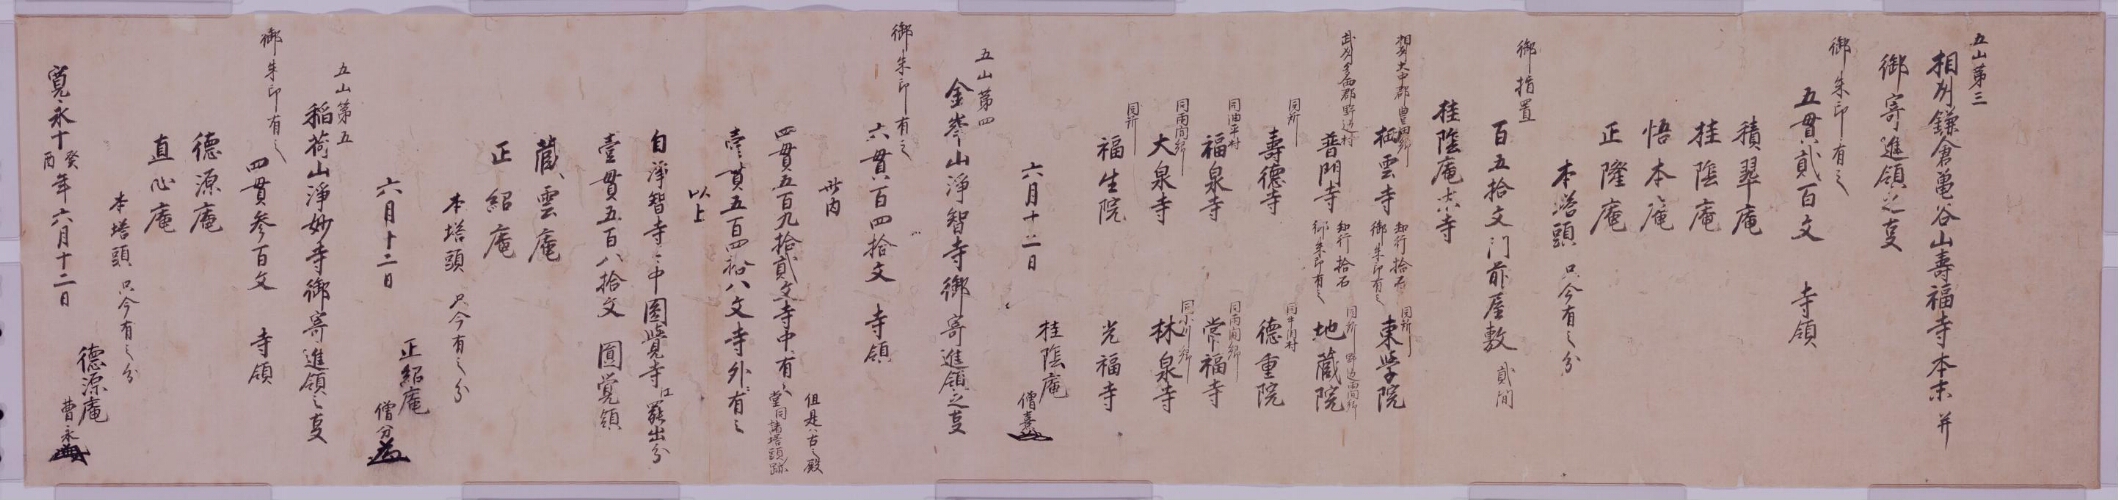 五山第三
相州鎌倉亀谷山壽福寺本末并
御寄進領之支
御朱印有之
五貫貳百文　寺領
積翠庵
桂陰庵
悟本庵
正隆庵
本塔頭　只今有之分
御指置
百五拾文門前屋敷　貳間
桂陰庵末寺
相州大中郡豊田郷
桐雲寺　知行拾石 御朱印有之
同所
東学院
武州多西郡野辺村
普門寺　知行拾石 御朱印有之
同所 野辺両間郷
地蔵院
同所
壽德寺
同牛沼村
德重院
同油平村
福泉寺
同雨間郷
常福寺
同雨間郷
大泉寺
同小川郷
林泉寺
同所
福生院
光福寺
六月十二日
桂陰庵
五山第四
金峯山淨智寺御寄進領之支
御朱印有之
六貫八百四拾文　寺領
此内
四貫五百九拾貳文寺中有之
但是ハ古之殿
堂同諸塔頭跡
壹貫五百四拾八文寺外ニ有之
以上
自淨智寺ニ中圓覺寺江罷出分
壹貫五百八拾文　圓覚領
蔵雲庵
正紹庵
本塔頭　只今有之分
六月十二日
正紹庵
五山第五
稲荷山淨妙寺御寄進領之支
御朱印有之
四貫参百文　寺領
德源庵
直心庵
本塔頭　只今有之分
寛永十癸酉年六月十二日
德源庵